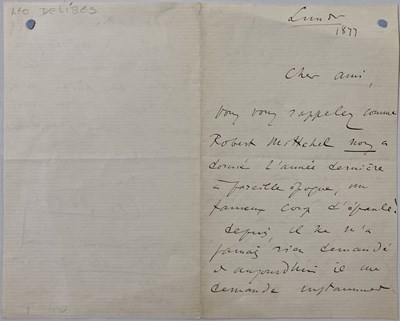 LEO DELIBES
Lundi
1877
Cher ami,
Vous vous rappelez comme
Robert Mitchel nous a
donné l'année dernière
à pareille époque, un
fameux coup d'épaule!
depuis, il ne m'a
jamais rien demandé
et aujourd'hui il me
demande instamment